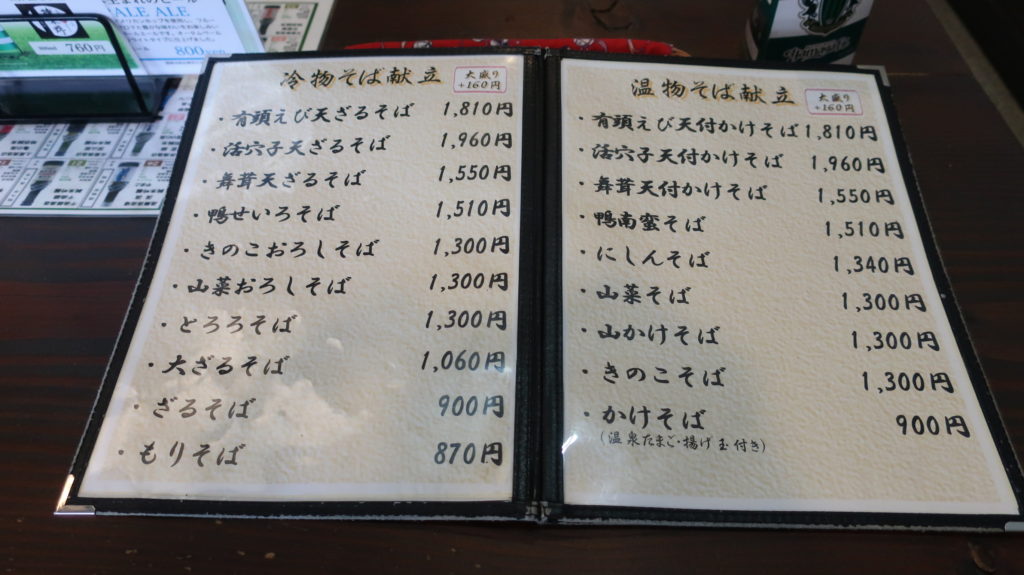 ALE ALE
760円
800
冷物そば献立
大盛り
+160円
・有頭えび天ざるそば 1,810円
・活穴子天ざるそば 1,960円
・舞茸天ざるそば 1,550円
・鴨せいろそば 1,510円
・きのこおろしそば 1,300円
・山菜おろしそば 1,300円
・とろろそば 1,300円
・大ざるそば 1,060円
・ざるそば 900円
・もりそば 870円
温物そば献立
大盛り
+160円
・有頭えび天付かけそば 1,810円
・活穴子天付かけそば 1,960円
・舞茸天付かけそば 1,550円
・鴨南蛮そば 1,510円
・にしんそば 1,340円
・山菜そば 1,300円
・山かけそば 1,300円
・きのこそば 1,300円
・かけそば 900円
(温泉たまご・揚げ玉付き)